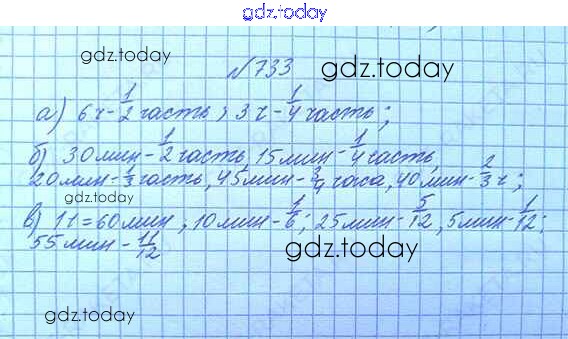 gdz.today
gdz.today
№733
gdz.today
а) 6ч - 1/2 часть; 3 ч - 1/4 часть;
б) 30 мин - 1/2 часть, 15 мин - 1/4 часть,
20 мин - 1/3 часть, 45 мин - 3/4 часа, 40 мин - 2/3 ч;
gdz.today
в) 1 ч = 60 мин, 10 мин - 1/6; 25 мин - 5/12, 5 мин - 1/12;
55 мин - 11/12
gdz.today
gdz.today